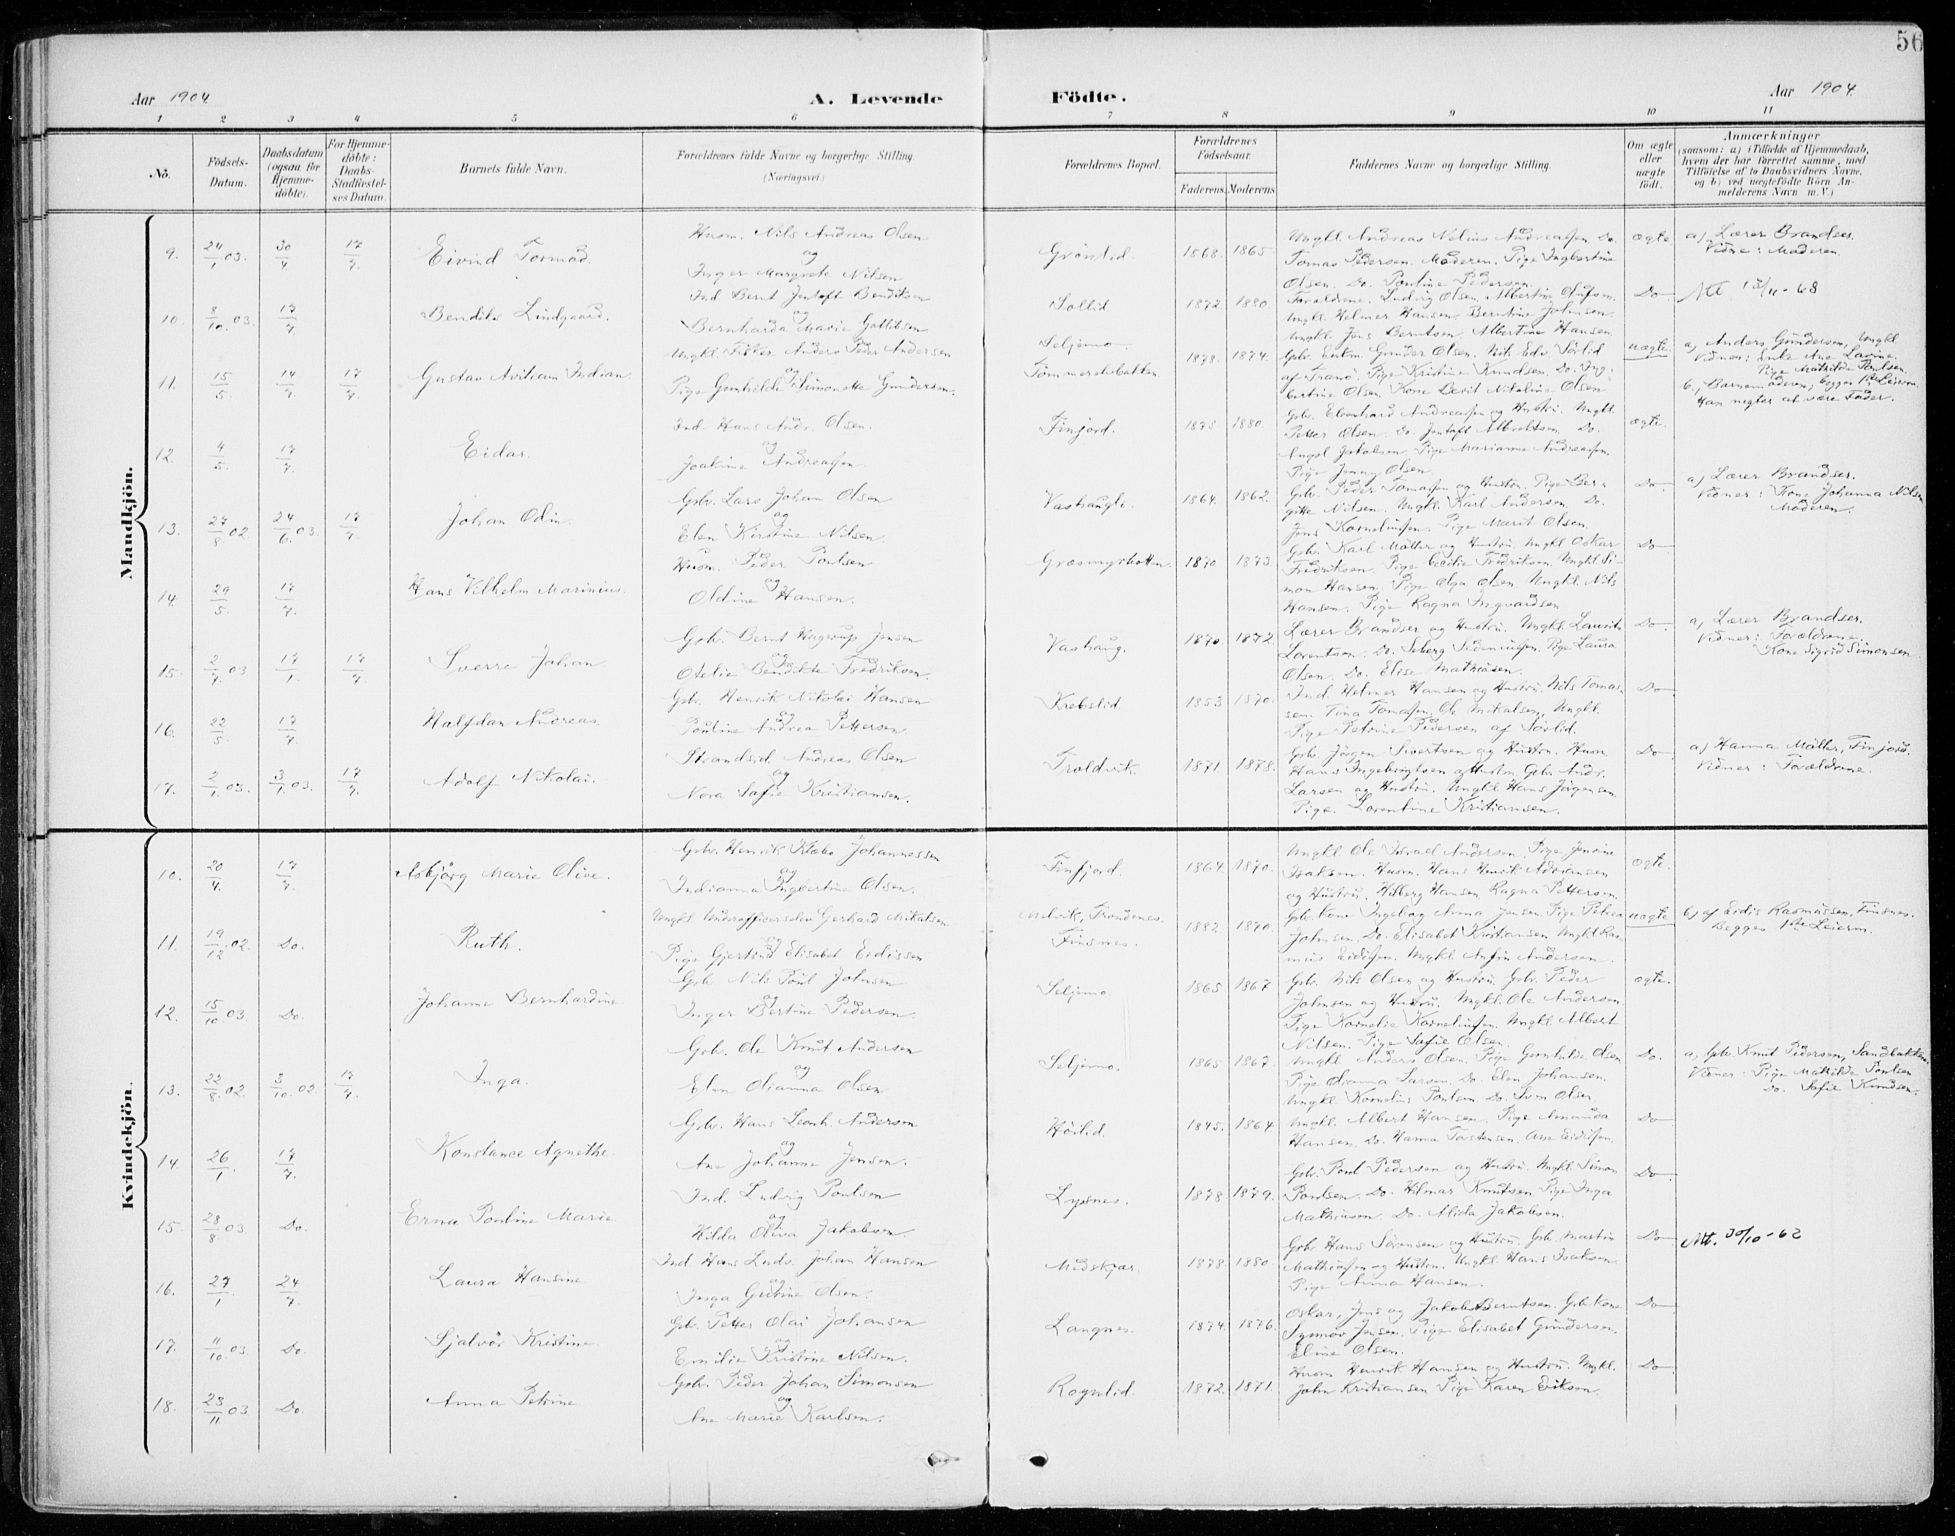 56
Aar 1904. A. Levende Födte. Aar 1904.
1 2 3 4 5 6 7 8 9 10 11
No. Födsels-Datum. Daabsdatum (ogsaa for Hjemmedöbte). For Hjemmedöbte: Daabs-Stadfæstelses Datum. Barnets fulde Navn. Forældrenes fulde Navne og borgerlige Stilling. (Næringsvei.) Forældrenes Bopæl. Forældrenes Födselsaar. Faderens. Moderens. Faddernes Navne og borgerlige Stilling. Om ægte eller uægte födt. Anmærkninger (saasom: a) i Tilfælde af Hjemmedaab, hvem der har forrettet samme, med Tilföielse af to Daabsvidners Navne, og b) ved uægtefödte Börn Anmelderens Navn m. V.)
Mandkjön.
9. 24/1 03. 30/4 17/7. Eivind Tormod. Husm. Nils Andreas Olsen og Inger Margrete Nilsen Grönlid. 1868. 1865. Ungkl. Andreas Nelius Andreassen. Do.
Tomas Pedersen. Moderen. Pige Ingbertine
Olsen. Do. Pauline Pedersen.
ægte. a) Lærer Brandser.
Vidne: Moderen.
10. 8/10 03. 17/7. Bendiks Lindgaard. Ind. Bernt Jentoft Bendiksen og Bernharda Marie Gotlibsen Sollid 1872. 1880. Forældrene. Ludvig Olsen, Albertine Olufsen.
Ungkl. Helmer Hansen, Berntine Johnsen.
Ungkl. Jens Berntsen, Albertine Hansen.
Do. Att 13/11-63
11. 15/5 14/7 17/7. Gustav Indian. Ungkl. Fisker Anders Peder Andersen og Pige Gunhilda Simonette Gundersen. Seljemo.
Tömmerelvbakken 1878. 1874. Gbr. Enkm. Gunder Olsen. Nils Edv. Sörlid
af Tranö. Pige Kristine Knudsen. Do. Ingbertine Olsen. Kone Berit Nikoline Olsen
uægte. a) Anders Gundersen, Ungkl.
Vidner: Enke Ane Lavine.
Pige Mathilde Poulsen.
b) Barnemoderen; begges 1ste Leierm.
Han negter at være Fader.
12. 4/5. 17/7. Eidar. Ind. Hans Andr. Olsen. og Joakine Andreassen. Finjord. 1875 1880. Gbr. Edvard Andreassen og Hustru. Ungkl.
Petter Olsen. Do. Jentoft Albrektsen. Do.
Angel Jakobsen. Pige Marianne Andreassen.
Pige Jenny Olsen.
ægte.
13. 27/8 02. 24/6 03. 17/7. Johan Odin. Gbr. Lars Johan Olsen og Elen Kirstine Nilsen. Vashaugle. 1864. 1862. Gbr. Peder Tomassen og Hustru. Pige Bergitte Nilsen. Ungkl. Karl Andersen. Do.
Jens Korneliussen. Pige Marit Olsen.
Do. a) Lærer Brandser.
Vidner: Kone Johanna Nilsen
Moderen.
14. 29/5. 17/7. Hans Vilhelm Marinius. Husm. Peder Poulsen og Oldine Hansen. Græsmyrbotten. 1870 1873. Gbr. Karl Möller og Hustru. Ungkl. Oskar
Fredriksen. Pige Cecilie Fredriksen. Ungkl. Simon Hansen. Pige Olga Olsen. Ungkl. Nils
Hansen. Pige Ragna Ingvardsen
Do.
15. 2/7 03 17/1. 17/7. Sverre Johan Gbr. Bernt Hagerup Jensen og Otelie Bendikte Fredriksen. Vashaug. 1870 1872. Lærer Brandser og Hustru. Ungkl. Laurits
Lorentsen. Do. Seberg Sedeniussen. Pige Laura
Olsen. Do. Elise Mathisen.
Do. a) Lærer Brandser.
Vidner: Forældrene.
Kone Sigrid Simonsen.
16. 22/5. 17/7. Halfdan Andreas. Gbr. Henrik Nikolai Hansen og Pauline Andrea Pettersen. Krebslid. 1853 1870. Ind. Helmer Hansen og Hustru. Nils Tomassen. Tina Tomassen. Ole Mikalsen, Ungkl.
Pige Petrine Pedersen af Sörlid.
Do
17. 2/1. 03. 3/1 03. 17/7. Adolf Nikolai. Strandsid. Andreas Olsen og Nora Sofie Kristiansen. Troldvik. 1871 1878. Gbr. Jörgen Sivertsen og Hustru. Husm
Hans Ingebrigtsen og Hustru. Gbr. Andr.
Larsen og Hustru. Ungkl. Hans Jörgensen.
Pige. Lorentine Kristiansen.
Do. a) Hanna Müller, Finjord.
Vidner: Forældrene.
Kvindekjön.
10. 20/4. 17/7. Asbjörg Marie Olive. Gbr. Henrik Klæbo Johannessen og Indianna Ingbertine Olsen. Finfjord. 1864. 1870. Ungkl. Ole Israel Andersen. Pige Jensine
Isaksen. Husm. Hans Henrik Adriansen
og Hustru. Hilberg Hansen Ragna Pettersen
ægte.
11. 19/12 .02. Do. Ruth. Ungkl. Underofficerselev Gerhard Mikalsen og Pige Gjertrud Elisabet Eidissen Melvik, Trondenes.
Finsnes. 1882 1870. Gbr. Kone Ingeborg Anna Jensen. Pige Petra
Johnsen. Do. Elisabet Kristiansen Ungkl. Rasmus Eidissen. Ungkl. Anfin Andersen.
uægte b) af Eidis Rasmussen, Finsnes.
Begges 1ste Leierm.
12. 15/10 03. Do. Johanne Bernhardine Gbr. Nils Poul Johnsen og Inger Bertine Pedersen. Seljemo. 1865 1867. Gbr. Nils Olsen og Hustru. Gbr. Peder
Johnsen og Hustru. Ungkl. Ole Andersen
Pige Kornelie Korneliussen. Ungkl. Albert
Nilsen. Pige Sofie Olsen.
ægte.
13. 22/8. 02. 3/10 02. 17/7. Inga. Gbr. Ole Knut Andersen og Elen Olianna Olsen Seljemo. 1865 1867. Ungkl. Anders Olsen. Pige Gunhilde Olsen
Pige Olianna Larsen. Do. Elen Johansen.
Ungkl. Kornelius Poulsen. Do. Sven Olsen
Do. a) Gbr. Knut Pedersen, Sandbakken.
Vidner: Pige Mathilde Poulsen
Do. Sofie Knudsen.
14. 26/1. 17/7. Konstance Agnethe. Gbr. Hans Leonh. Andersen og Ane Johanna Jensen. Höilid. 1845. 1864. Ungkl. Albert Hansen. Pige Amanda
Hansen. Do. Hanna Torstensen. Ane Eidissen.
Do
15. 28/8 03. Do. Erna Pauline Marie Ind. Ludvig Poulsen og Hilda Oliva Jakobsen Lysnes. 1878 1879. Gbr. Poul Pedersen og Hustru. Ungkl. Simon
Poulsen. Do. Hilmar Knutsen Pige Inga
Mathisen. Do. Alida Jakobsen.
Do
16. 27/1. 24/7. Laura Hansine Ind Hans Ludv. Johan Hansen og Inga Gurine Olsen. Midskjær. 1878. 1880. Gbr. Hans Sörensen og Hustru. Gbr. Martin
Mathiassen og Hustru. Ungkl. Hans Isaksen.
Pige Anna Hansen.
Do Att. 30/10-62
17. 11/10 03. Do. Sjalvör Kristine. Gbr. Petter Olai Johansen og Emilie Kristine Nilsen. Langnes. 1874. 1876. Oskar, Jens og Jakob Berntsen. Gbr. kone
Synnöv Jensen. Pige Elisabet Gundersen.
Eline Olsen.
Do
18. 23/11 03 Do. Anna Petrine Gbr. Peder Johan Simonsen og Ane Marie Karlsen. Rognlid. 1872. 1871. Husm Henrik Hansen og Hustru. Ungkl.
John Kristiansen Pige Karen Eriksen.
Do